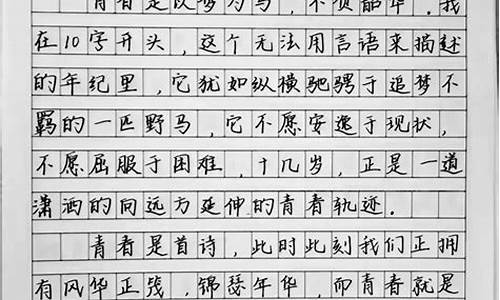 青春是以梦为马，不负韶华。我
在10字开头，这个无法用言语来描述
的年纪里，它犹如纵横驰骋于追梦不
羁的一匹野马，它不愿安逸于现状，
不愿屈服于困难，十几岁，正是一道
潇洒的向远方延伸的青春轨迹．
青春是首诗，此时此刻我们正拥
有风华正茂，锦瑟年华，而青春就是